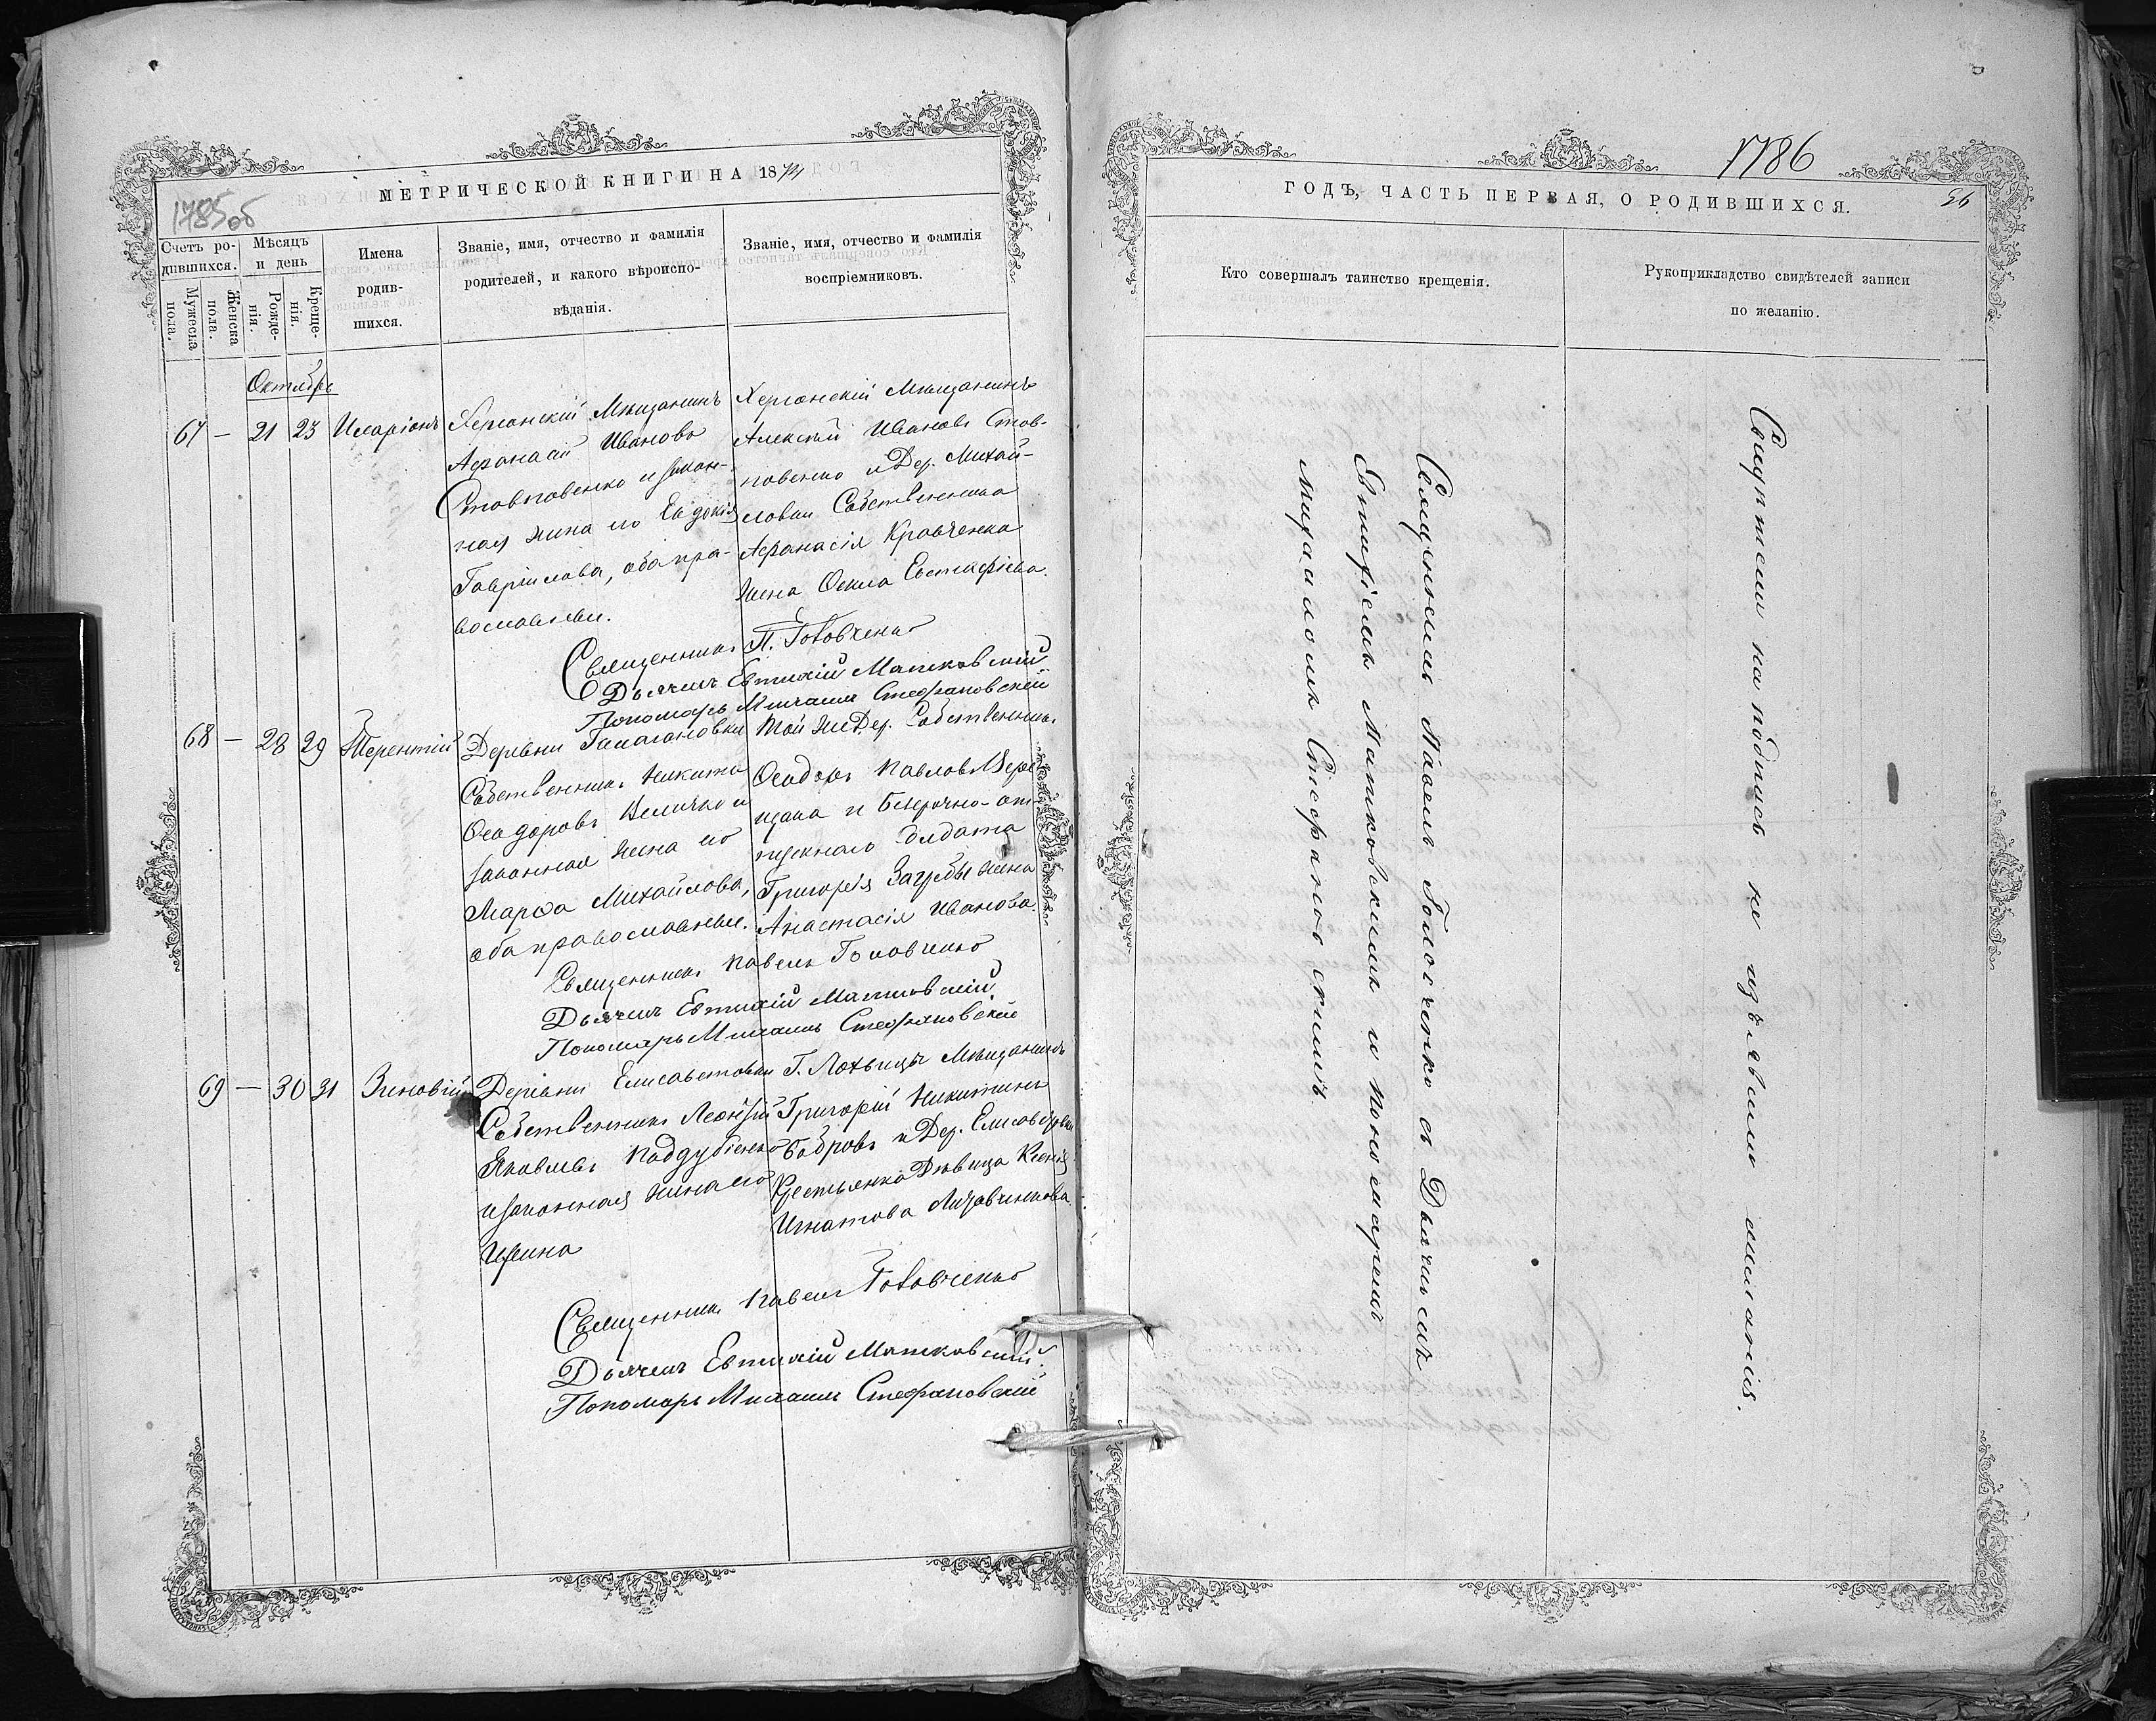 1785об
МЕТРИЧЕСКОЙ КНИГИ НА 1874
Счетъ ро-
дившихся.
Мужеска
пола.
Женска
пола.
Мѣсяцъ
и день
Рожде-
нія.
Креще-
нія.
Имена
родив-
шихся.
Званіе, имя, отчество и фамилія
родителей, и какого вѣроиспо-
вѣданія.
Званіе, имя, отчество и фамилія
воспріемниковъ.
Октябрь
67 – 21 23 Иларіонъ
Херсонскій Мѣщанинъ
Афанасій Ивановъ
Стовповенко и закон-
ная жена его Евдокія
Гавріилова, оба пра-
вославные.
Херсонскій Мѣщанинъ
Алексѣй Ивановъ Стов-
повенко и Дер. Михай-
ловки Собственника
Афанасія Кравченка
жена Євстафіева.
Священникъ П. Головченко
Дьячекъ Евтихій Матковскій
Пономарь Михаилъ Стефановскій
68 – 28 29 Терентій
Деревни
Собственникъ Никита
Ѳеодоровъ Величко и
законная жена его
Марфа Михайлова,
оба православные.
той же Дер. Собственникъ
Ѳеодоръ Павловъ Вере-
щака и безсрочно-от-
пускнаго Солдата
Григорія Загубы жена
Анастасія Иванова.
Священникъ Павелъ Головченко
Дьячекъ Евтихій Матковскій
Пономарь Михаилъ Стефановскій
69 — 30 31 Зиновій
Деревни Елисаветовки
Собственникъ Леонтій
Яковлевъ Поддубченко
и законная жена его
Ирина
Г. Лохвицы Мѣщанинъ
Григорій Никитинъ
Бобровъ и Дер. Елисаветовки
Крестьянка Дѣвица Ксенія
Игнатова
Священникъ Павелъ Головченко
Дьячекъ Евтихій Матковскій.
Пономарь Михаилъ Стефановскій
1786
26
ГОДЪ, ЧАСТЬ ПЕРВАЯ, О РОДИВШИХСЯ.
Кто совершалъ таинство крещенія.
Рукоприкладство свидѣтелей записи
по желанію.
Священникъ Павелъ Головченко съ Дьячкомъ
Евтихіемъ Матковскимъ и пономаремъ
Михаиломъ Стефановскимъ.
Свидѣтели на подпись не изъявили желанія.